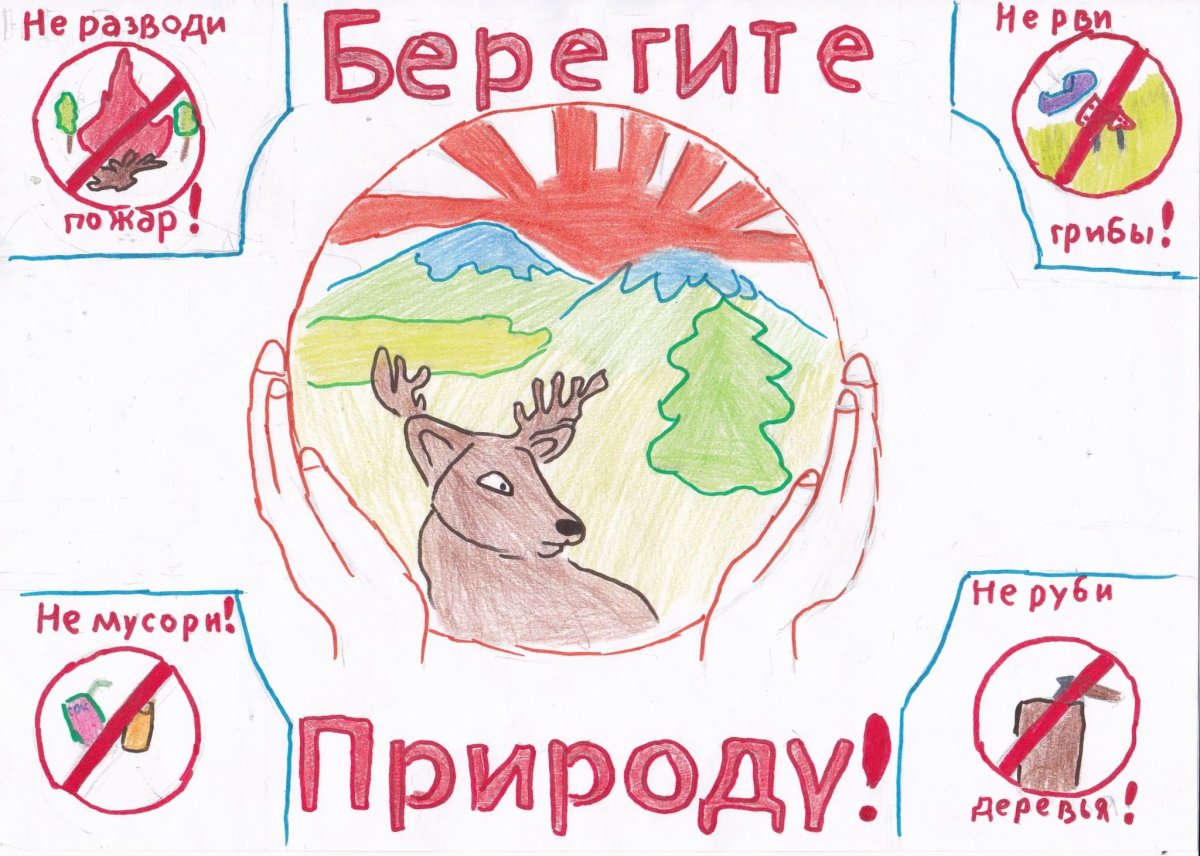 Берегите
Не разводи
пожар!
Не рви
грибы!
Не мусори!
Не руби
деревья!
Природу!